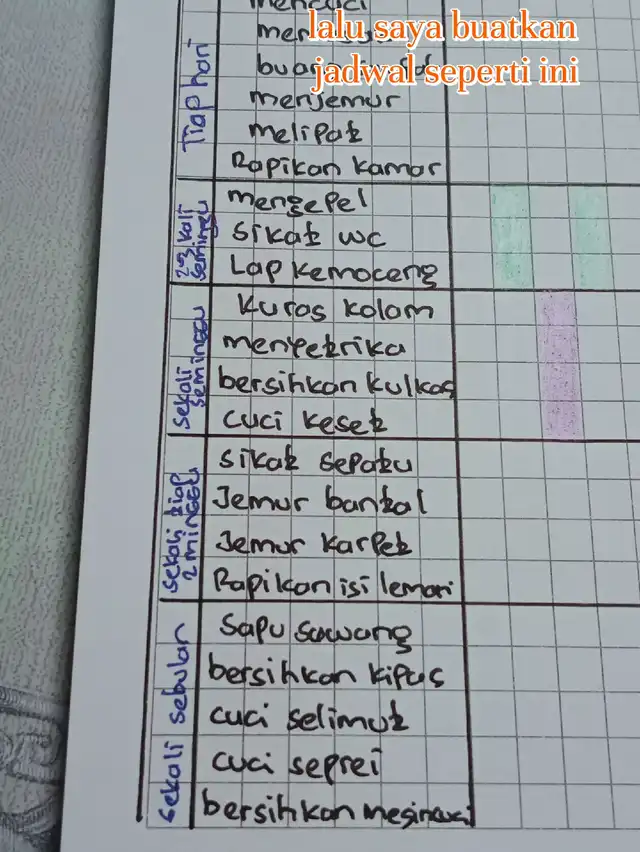 mencuci
lalu saya buatkan
jadwal seperti ini
Tiap hari
menjemur
melipat
Rapikan kamar
2-3 kali
seminggu
mengepel
Sikat wc
Lap kemoceng
sekali
seminggu
Kuras kolam
menyetrika
bersihkan kulkas
cuci keset
sekali tiap
2 minggu
Sikat sepatu
Jemur bantal
Jemur karpet
Rapikan isi lemari
sekali sebulan
Sapu sawang
bersihkan kipas
cuci selimut
cuci seprei
bersihkan mesin cuci